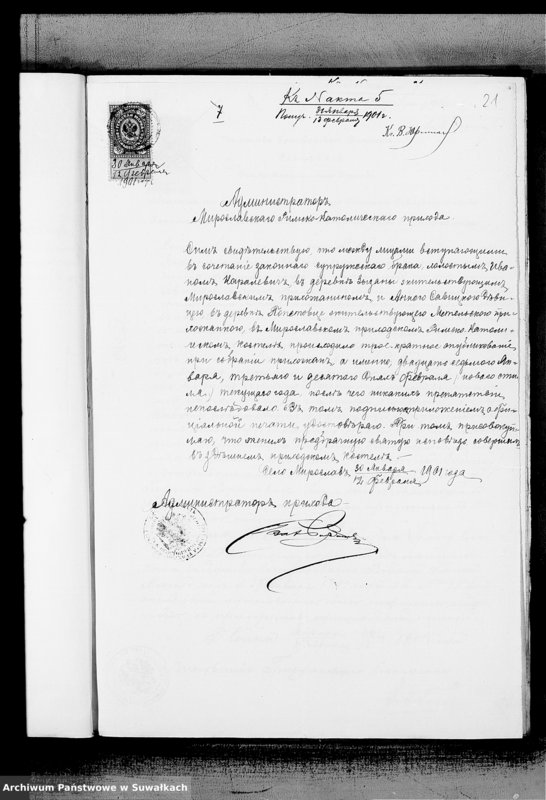 Къ № акта 5
21
7
Получ. 30 Января 1901 г.
13 Февраля
Кс. В.
30 Января
12 Февраля
1901 г.
Администраторъ
Мирославскаго Римско-Католическаго прихода
Симъ свидѣтельствую что между лицами вступающими
въ сочетаніе законнаго супружескаго брака холостымъ, Ива-
номъ Каралевичъ, въ деревнѣ жительствующимъ
Мирославскимъ прихожаниномъ, и Анною Савицкою дѣви-
цею, въ деревнѣ жительствующею Метельскою при-
хожанкою, въ Мирославскомъ приходскомъ Римско-Католи-
ческомъ костелѣ, происходило трое-кратное опубликованіе,
при собраніи прихожанъ, а именно, двадцать седьмого Ян-
варя, третьяго и десятаго Февраля (новаго сти-
ля) текущаго года, послѣ чего никакихъ препятствій
непослѣдовало. Въ томъ подписью и приложеніемъ оффи-
ціальной печати, удостовѣряю. При томъ присовокуп-
ляю, что женихъ предбрачную святую исповѣдь совершилъ
въ здѣшнемъ приходскомъ костелѣ.—
Село Мирославъ 30 Января 1901 года
12 Февраля
Администраторъ прихода
Archiwum Państwowe w Suwałkach